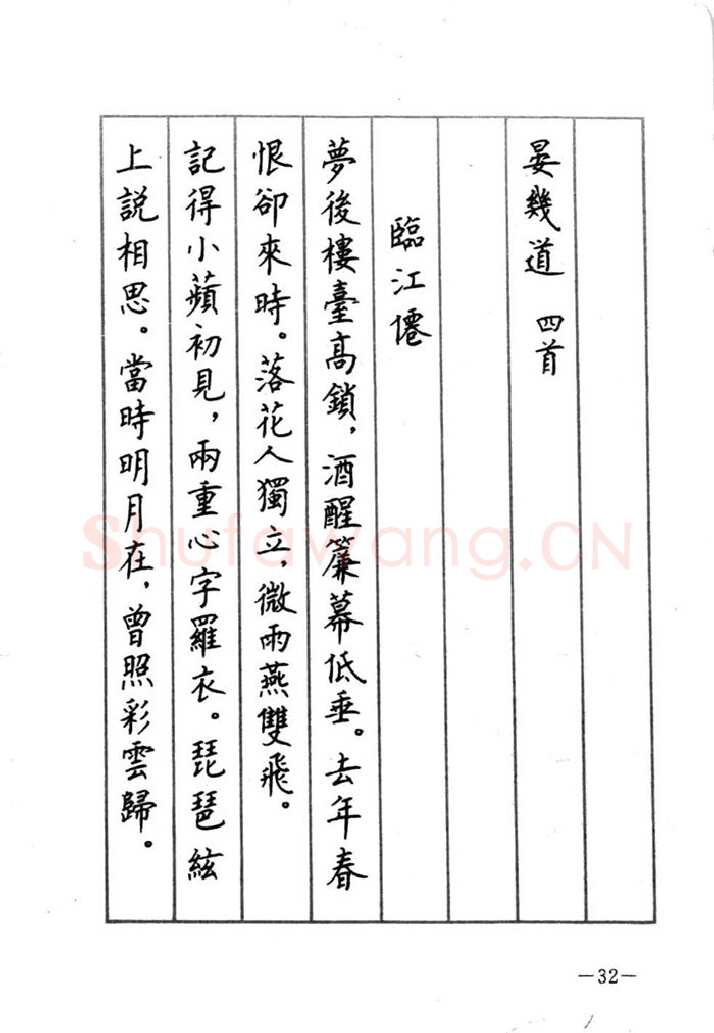 晏幾道 四首
臨江僊
夢後樓臺高鎖，酒醒簾幕低垂。去年春
恨卻來時。落花人獨立，微雨燕雙飛。
記得小蘋初見，兩重心字羅衣。琵琶絃
上説相思。當時明月在，曾照彩雲歸。
Shufawang.CN
—32—